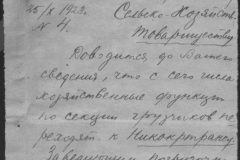 25/X 1923.
№ 4.
Сельско-Хозяйств.
Товариществу
Доводится до Вашего
сведения, что с сего числа
хозяйственные функции
по секции грузчиков пе
реходят к
Заведающий